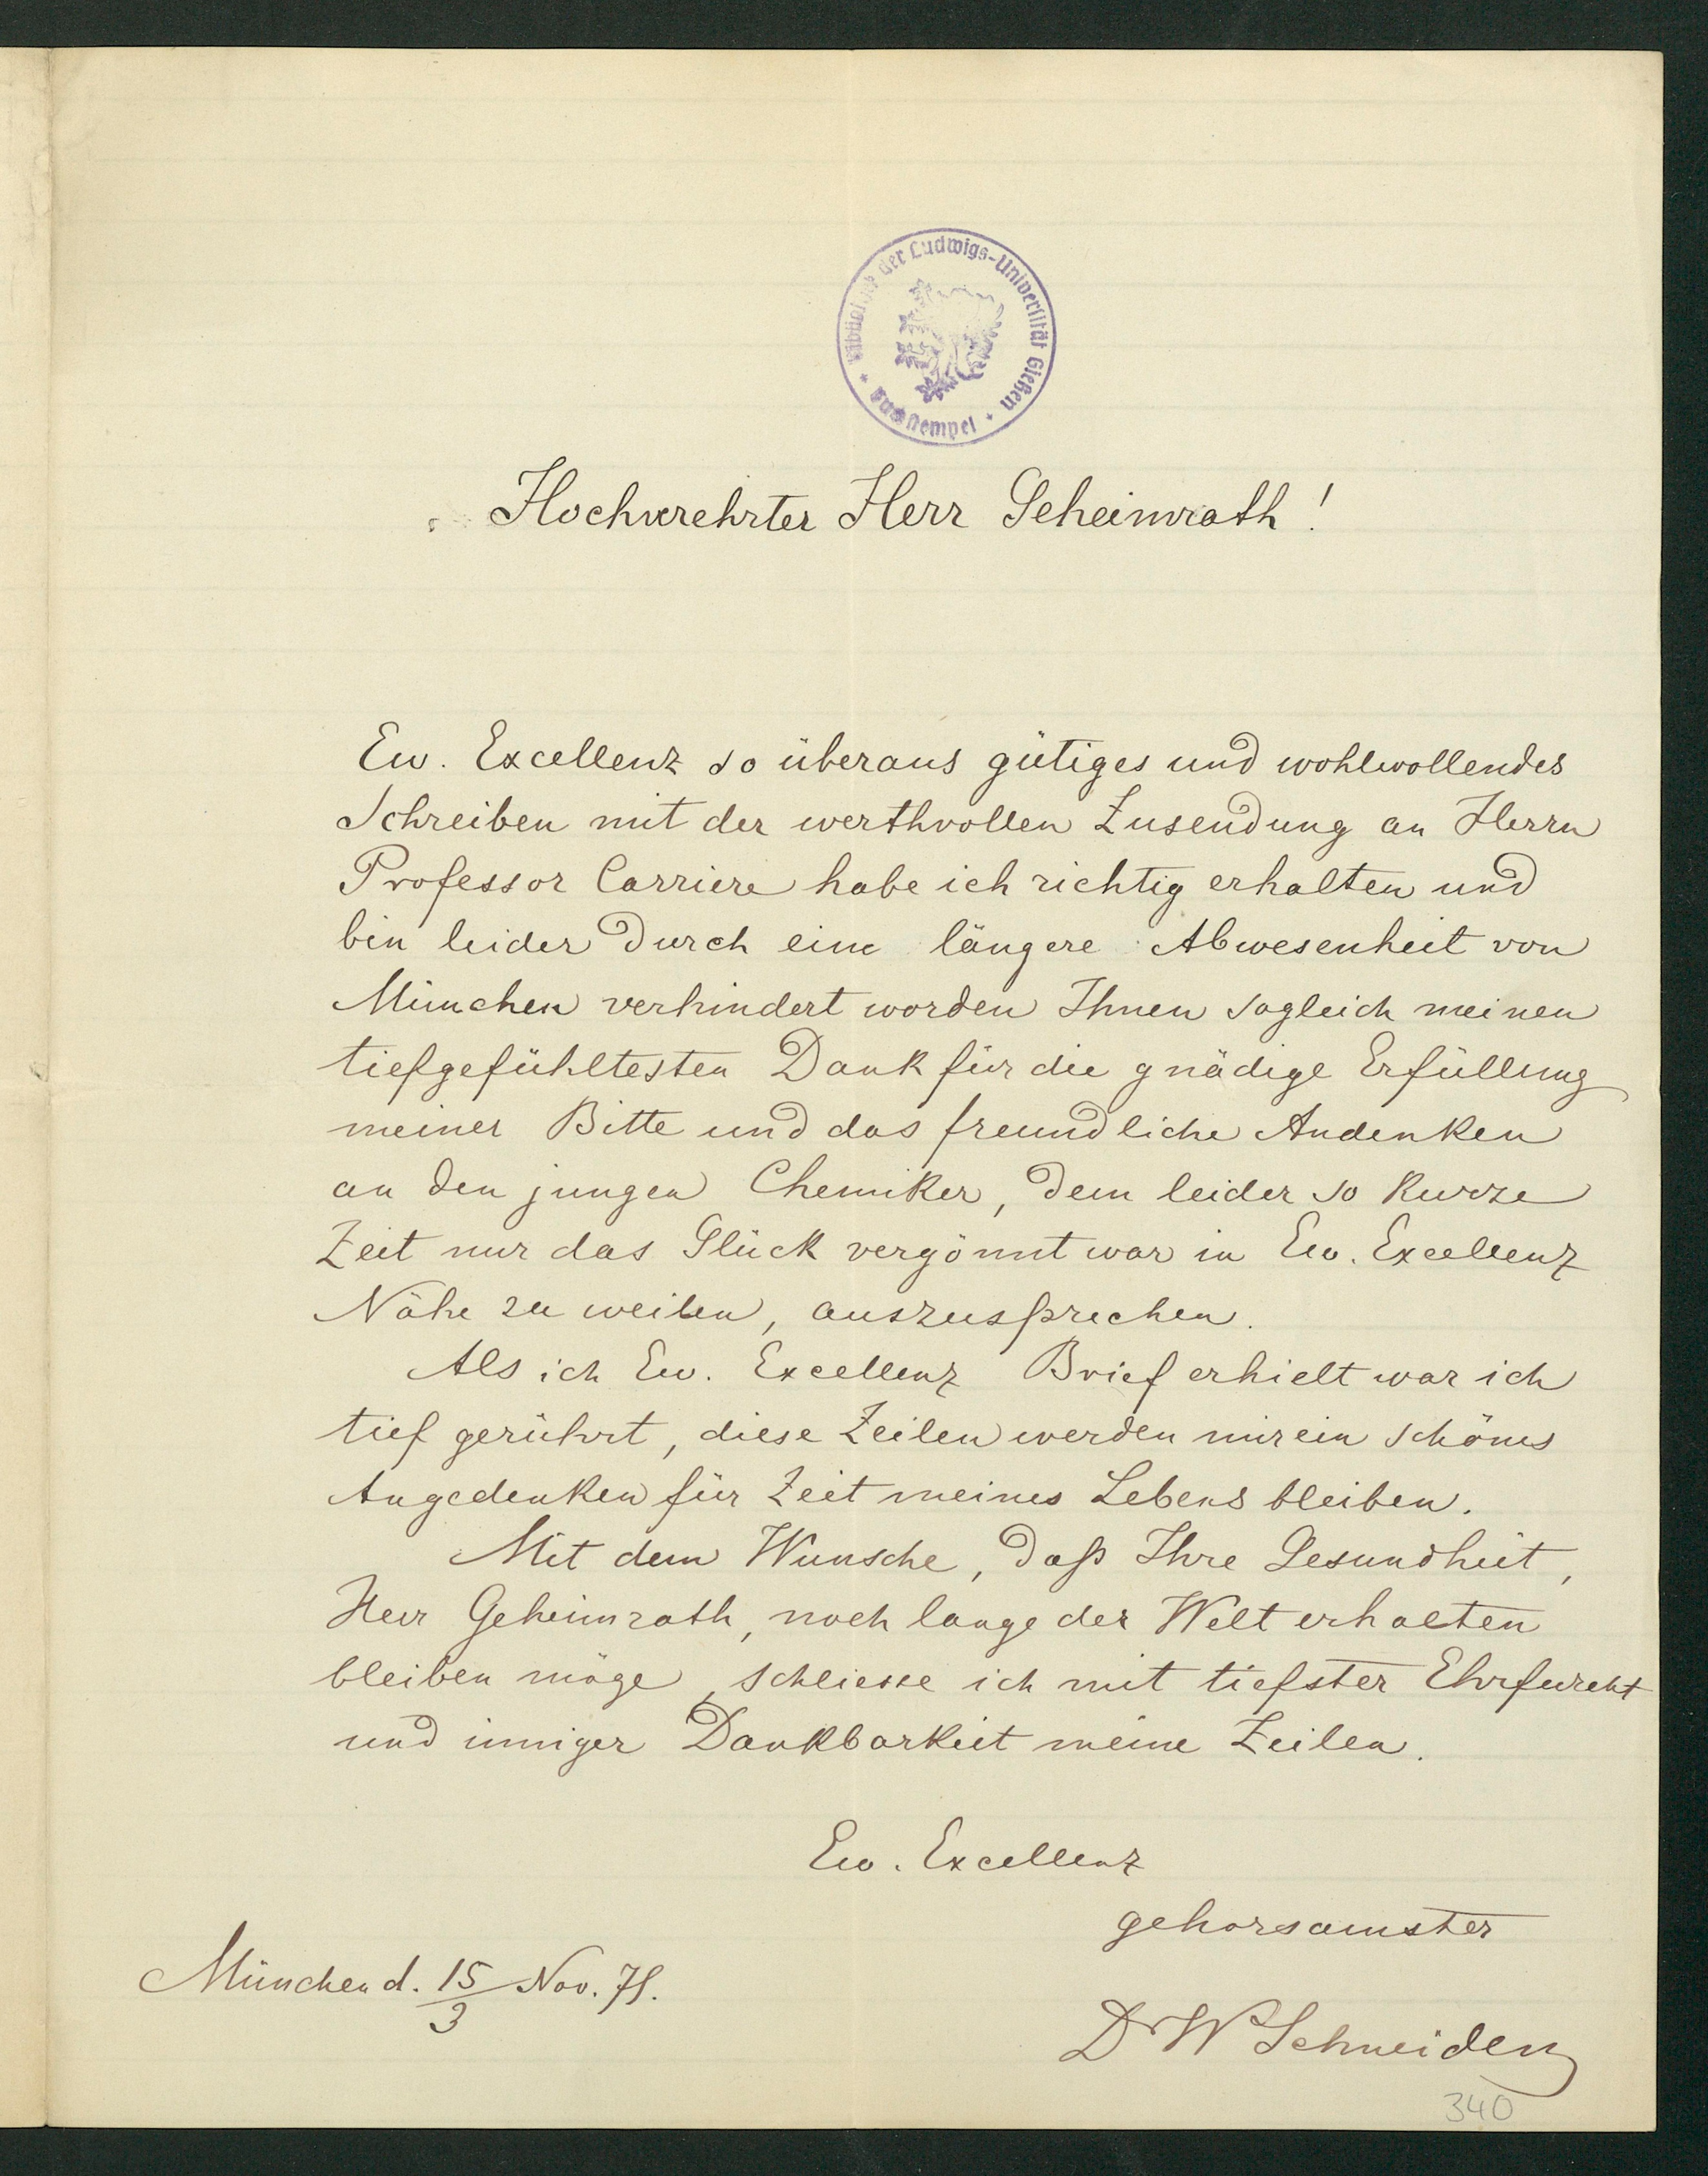 Bibliothek der Ludwigs-Universität Gießen
Hochverehrter Herr Geheimrath!
Ew. Excellenz so überaus gütiges und wohlwollendes
Schreiben mit der werthvollen Zusendung an Herrn
Professor Carriere habe ich richtig erhalten und
bin leider durch eine längere Abwesenheit von
München verhindert worden Ihnen sogleich meinen
tiefgefühltesten Dank für die gnädige Erfüllung
meiner Bitte und das freundliche Andenken
an den jungen Chemiker, dem leider so kurze
Zeit nur das Glück vergönnt war in Ew. Excellenz
Nähe zu weilen, auszusprechen.
Als ich Ew. Excellenz Brief erhielt war ich
tief gerührt, diese Zeilen werden mir ein schönes
Angedenken für Zeit meines Lebens bleiben.
Mit dem Wunsche, daß Ihre Gesundheit,
Herr Geheimrath, noch lange der Welt erhalten
bleiben möge, schliesse ich mit tiefster Ehrfurcht
und inniger Dankbarkeit meine Zeilen.
Ew. Excellenz
gehorsamster
München d. 15/3 Nov. 71.
Dr W Schneider
340